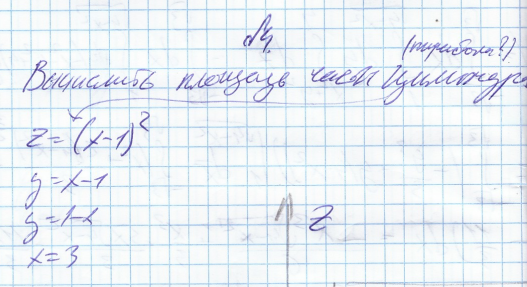 №4
(парабола?)
Вычислить площадь части цилиндра
z = (x-1)²
y = x-1
y = 1-x
x = 3
z